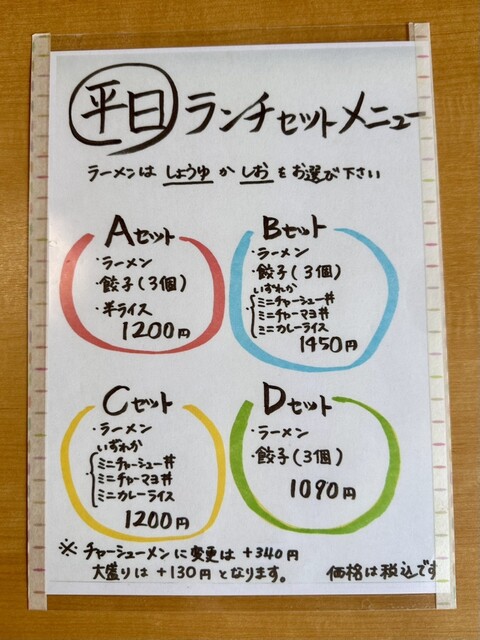 平日 ランチセットメニュー
ラーメンは しょうゆ か しお をお選び下さい
Aセット
・ラーメン
・餃子(3個)
・半ライス
1200円
Bセット
・ラーメン
・餃子(3個)
いずれか
ミニチャーシュー丼
ミニチャーマヨ丼
ミニカレーライス
1450円
Cセット
・ラーメン
いずれか
ミニチャーシュー丼
ミニチャーマヨ丼
ミニカレーライス
1200円
Dセット
・ラーメン
・餃子(3個)
1090円
※ チャーシューメンに変更は +340円
大盛りは +130円となります。
価格は税込です